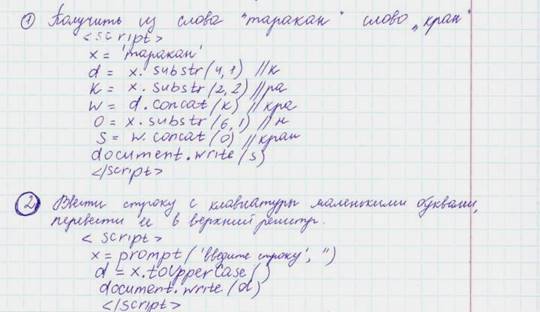 ① Получить из слова "таракан" слово "кран"
<script>
x = 'таракан'
d = x.substr(4,1) //к
k = x.substr(2,2) //ра
w = d.concat(k) //кра
o = x.substr(6,1) //н
s = w.concat(o) //кран
document.write(s)
</script>
② Ввести строку с клавиатуры маленькими буквами,
перевести ее в верхний регистр.
<script>
x = prompt('введите строку', '')
d = x.toUpperCase()
document.write(d)
</script>